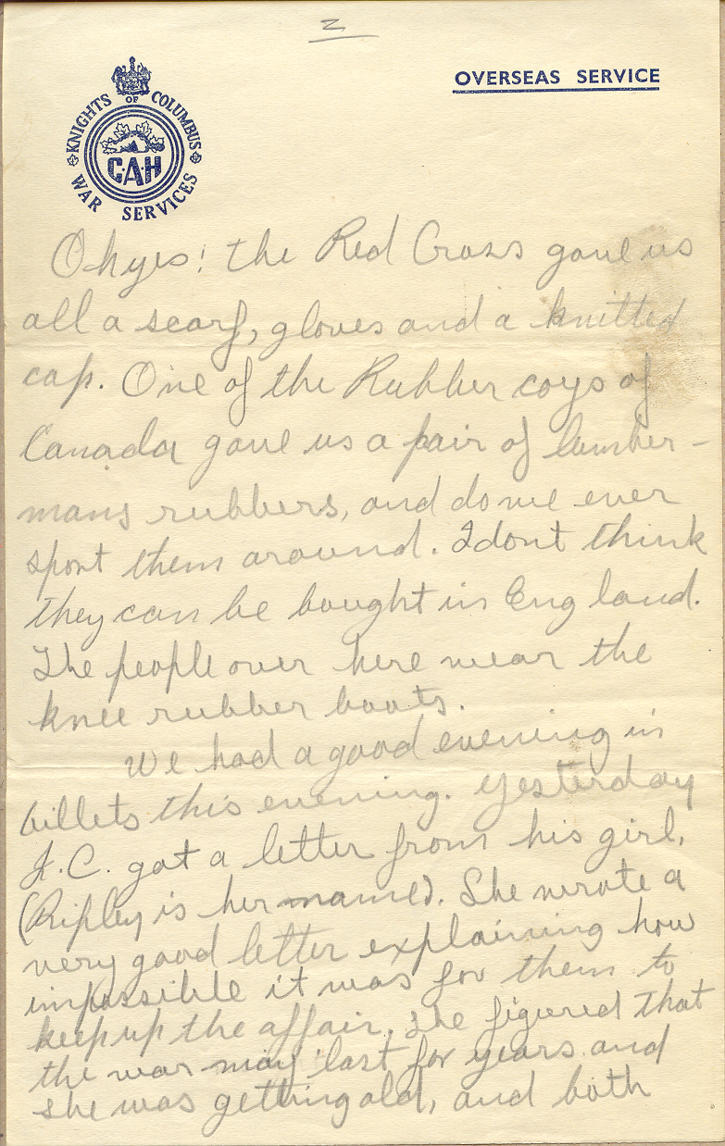 2
OVERSEAS SERVICE
KNIGHTS OF COLUMBUS
C.A.H
WAR SERVICES
Oh yes! the Red Cross gave us
all a scarf, gloves and a knitted
cap. One of the Rubber coys of
Canada gave us a pair of lumber-
mans rubbers, and do we ever
sport them around. I dont think
they can be bought in England.
The people over here wear the
knee rubber boots.
We had a good evening in
billets this evening. Yesterday
J.C. got a letter from his girl,
(Ripley is her name). She wrote a
very good letter explaining how
impossible it was for them to
keep up the affair. She figured that
the war may last for years and
she was getting old, and both